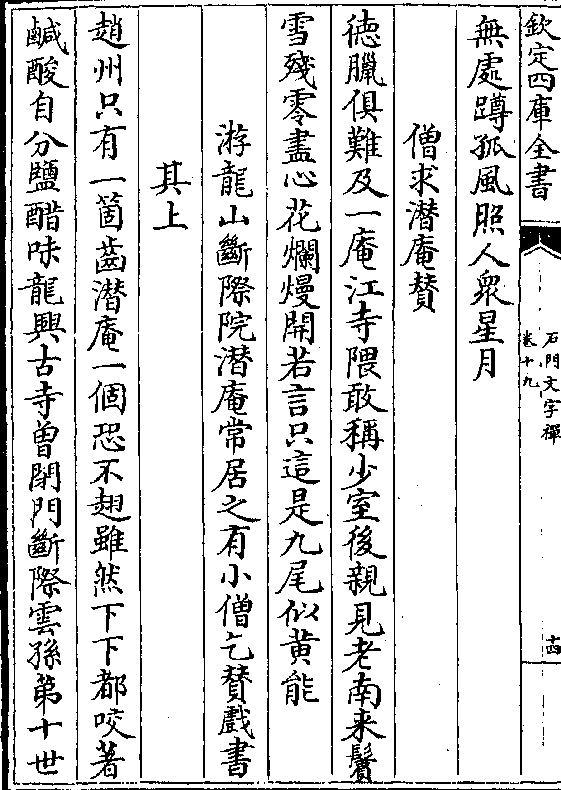 欽定四庫全書
石門文字禪
卷十九
十四
無處蹲孤風照人衆星月
僧求潛庵贊
徳臘俱難及一庵江寺隈敢稱少室後親見老南来鬢
雪殘零盡心花爛熳開若言只這是九尾似黄能
游龍山斷際院潛庵常居之有小僧乞贊戲書
其上
趙州只有一箇齒潛庵一個恐不翅雖然下下都咬著
鹹酸自分鹽醋味龍興古寺曽閉門斷際雲孫第十世